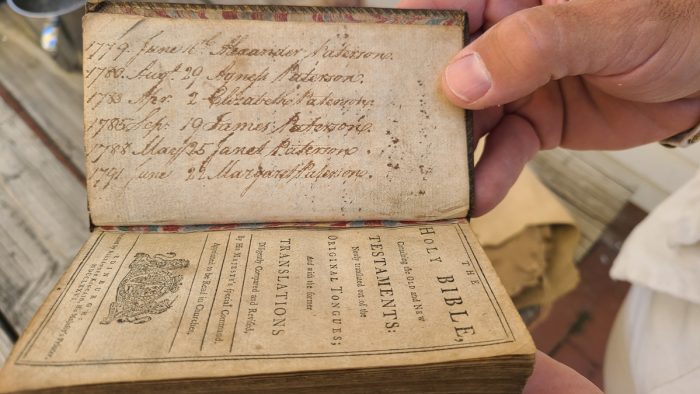 1779 June Alexander Paterson
1780 Augt. 29 Agness Paterson.
1783 Apr. 2 Elizabeth Paterson.
1785 Sep. 19 James Paterson.
1788 May 25 Janet Paterson.
1791 June 22 Margaret Paterson.
THE
HOLY BIBLE,
Containing the OLD and NEW
TESTAMENTS:
Newly translated out of the
ORIGINAL TONGUES;
And with the former
TRANSLATIONS
Diligently Compared and Revised,
By His MAJESTY'S special Command.
Appointed to be Read in Churches.
EDINBURGH: